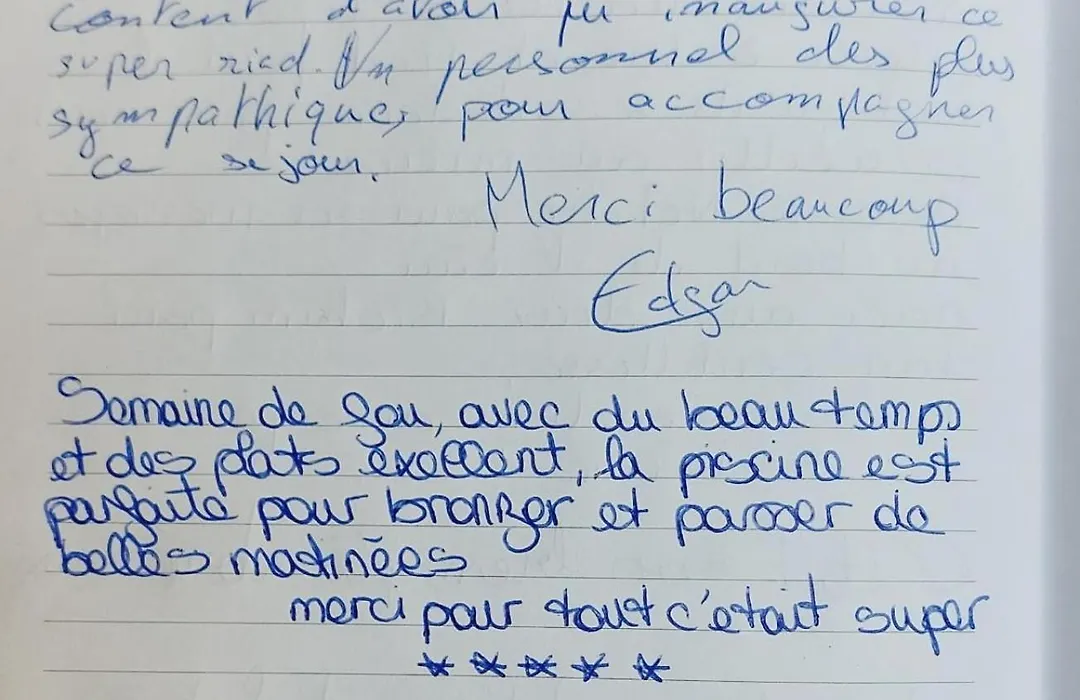 content d'avoir pu inaugurer ce
super ried. Un personnel des plus
sympathique, pour accompagner
ce sejour.
Merci beaucoup
Edgar
Semaine de fou, avec du beau temps
et des plats éxellent, la piscine est
parfaite pour bronzer et passer de
belles matinées
merci pour tout c'était super
★ ★ ★ ★ ★